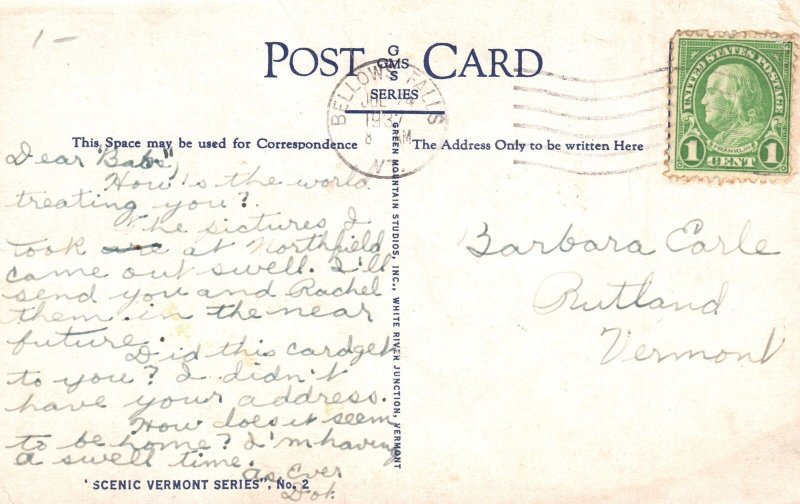 1-
POST CARD
G
GMS
S
SERIES
BELLOWS FALLS
JUL
1937
8 M
VT.
UNITED STATES POSTAGE
FRANKLIN
1 CENT 1
This Space may be used for Correspondence
The Address Only to be written Here
Dear "Babs",
How's the world
treating you?
The pictures I
took are at Northfield
came out swell. I'll
send you and Rachel
them in the near
future.
Did this card get
to you? I didn't
have your address.
How does it seem
to be home? I'm having
a swell time.
As Ever
Dot
GREEN MOUNTAIN STUDIOS, INC., WHITE RIVER JUNCTION, VERMONT
Barbara Earle
Rutland
Vermont
'SCENIC VERMONT SERIES", No. 2